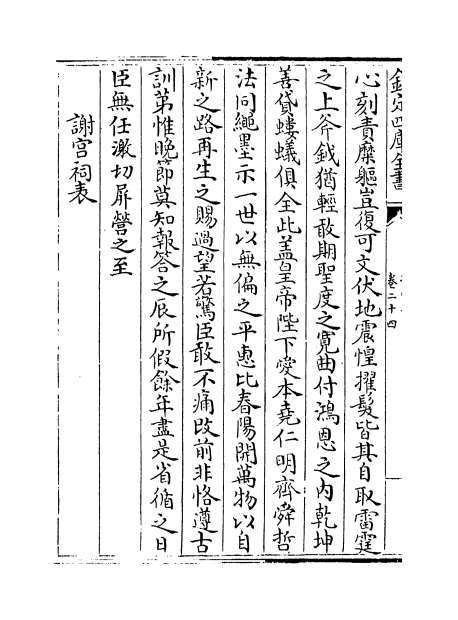 欽定四庫全書
卷二十四
心刻責糜軀豈復可文伏地震惶擢髮皆其自取雷霆
之上斧鉞猶輕敢期聖度之寛曲付鴻恩之內乾坤
善貸螻蟻俱全此盖皇帝陛下愛本堯仁明齊舜哲
法同繩墨示一世以無偏之平惠比春陽開萬物以自
新之路再生之賜過望若驚臣敢不痛改前非恪遵古
訓第惟晚節莫知報答之辰所假餘年盡是省循之日
臣無任激切屏營之至
謝宫祠表